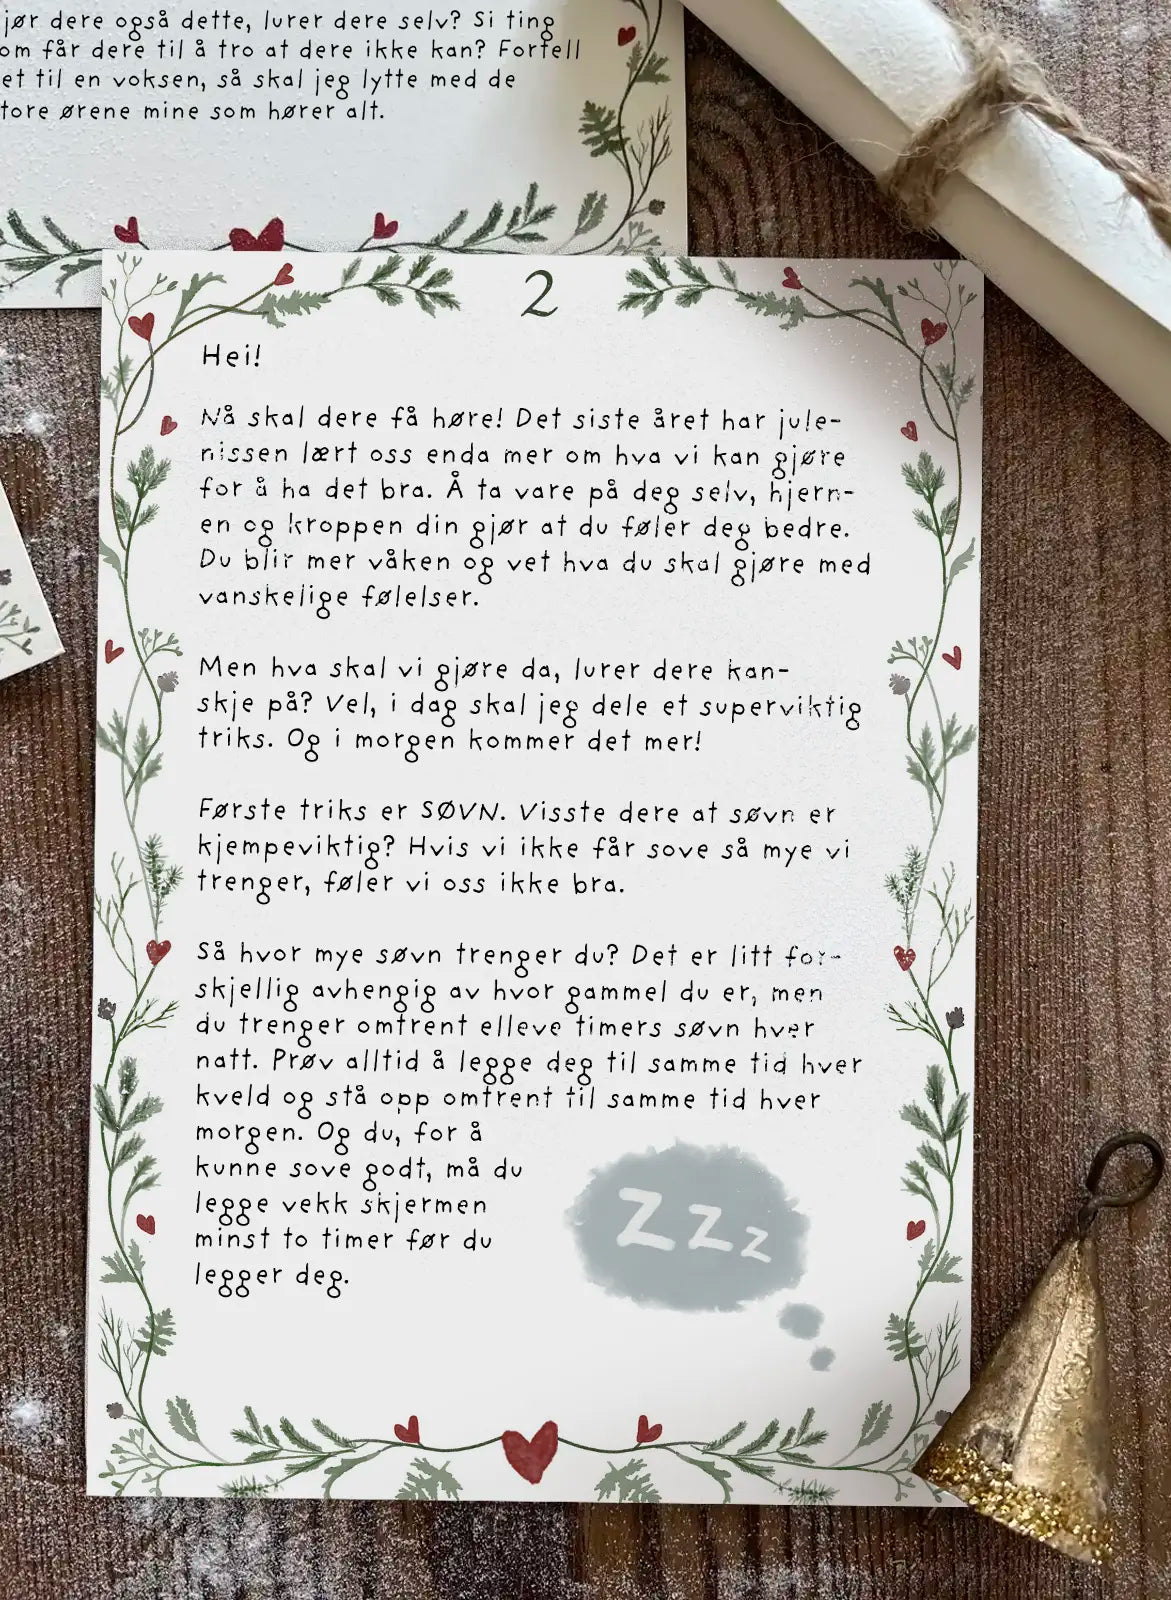 jør dere også dette, lurer dere selv? Si ting
om får dere til å tro at dere ikke kan? Fortell
et til en voksen, så skal jeg lytte med de
tore ørene mine som hører alt.
2
Hei!
Nå skal dere få høre! Det siste året har jule-
nissen lært oss enda mer om hva vi kan gjøre
for å ha det bra. Å ta vare på deg selv, hjern-
en og kroppen din gjør at du føler deg bedre.
Du blir mer våken og vet hva du skal gjøre med
vanskelige følelser.
Men hva skal vi gjøre da, lurer dere kan-
skje på? Vel, i dag skal jeg dele et superviktig
triks. Og i morgen kommer det mer!
Første triks er SØVN. Visste dere at søvn er
kjempeviktig? Hvis vi ikke får sove så mye vi
trenger, føler vi oss ikke bra.
Så hvor mye søvn trenger du? Det er litt for-
skjellig avhengig av hvor gammel du er, men
du trenger omtrent elleve timers søvn hver
natt. Prøv alltid å legge deg til samme tid hver
kveld og stå opp omtrent til samme tid hver
morgen. Og du, for å
kunne sove godt, må du
legge vekk skjermen
minst to timer før du
legger deg.
Z Z Z